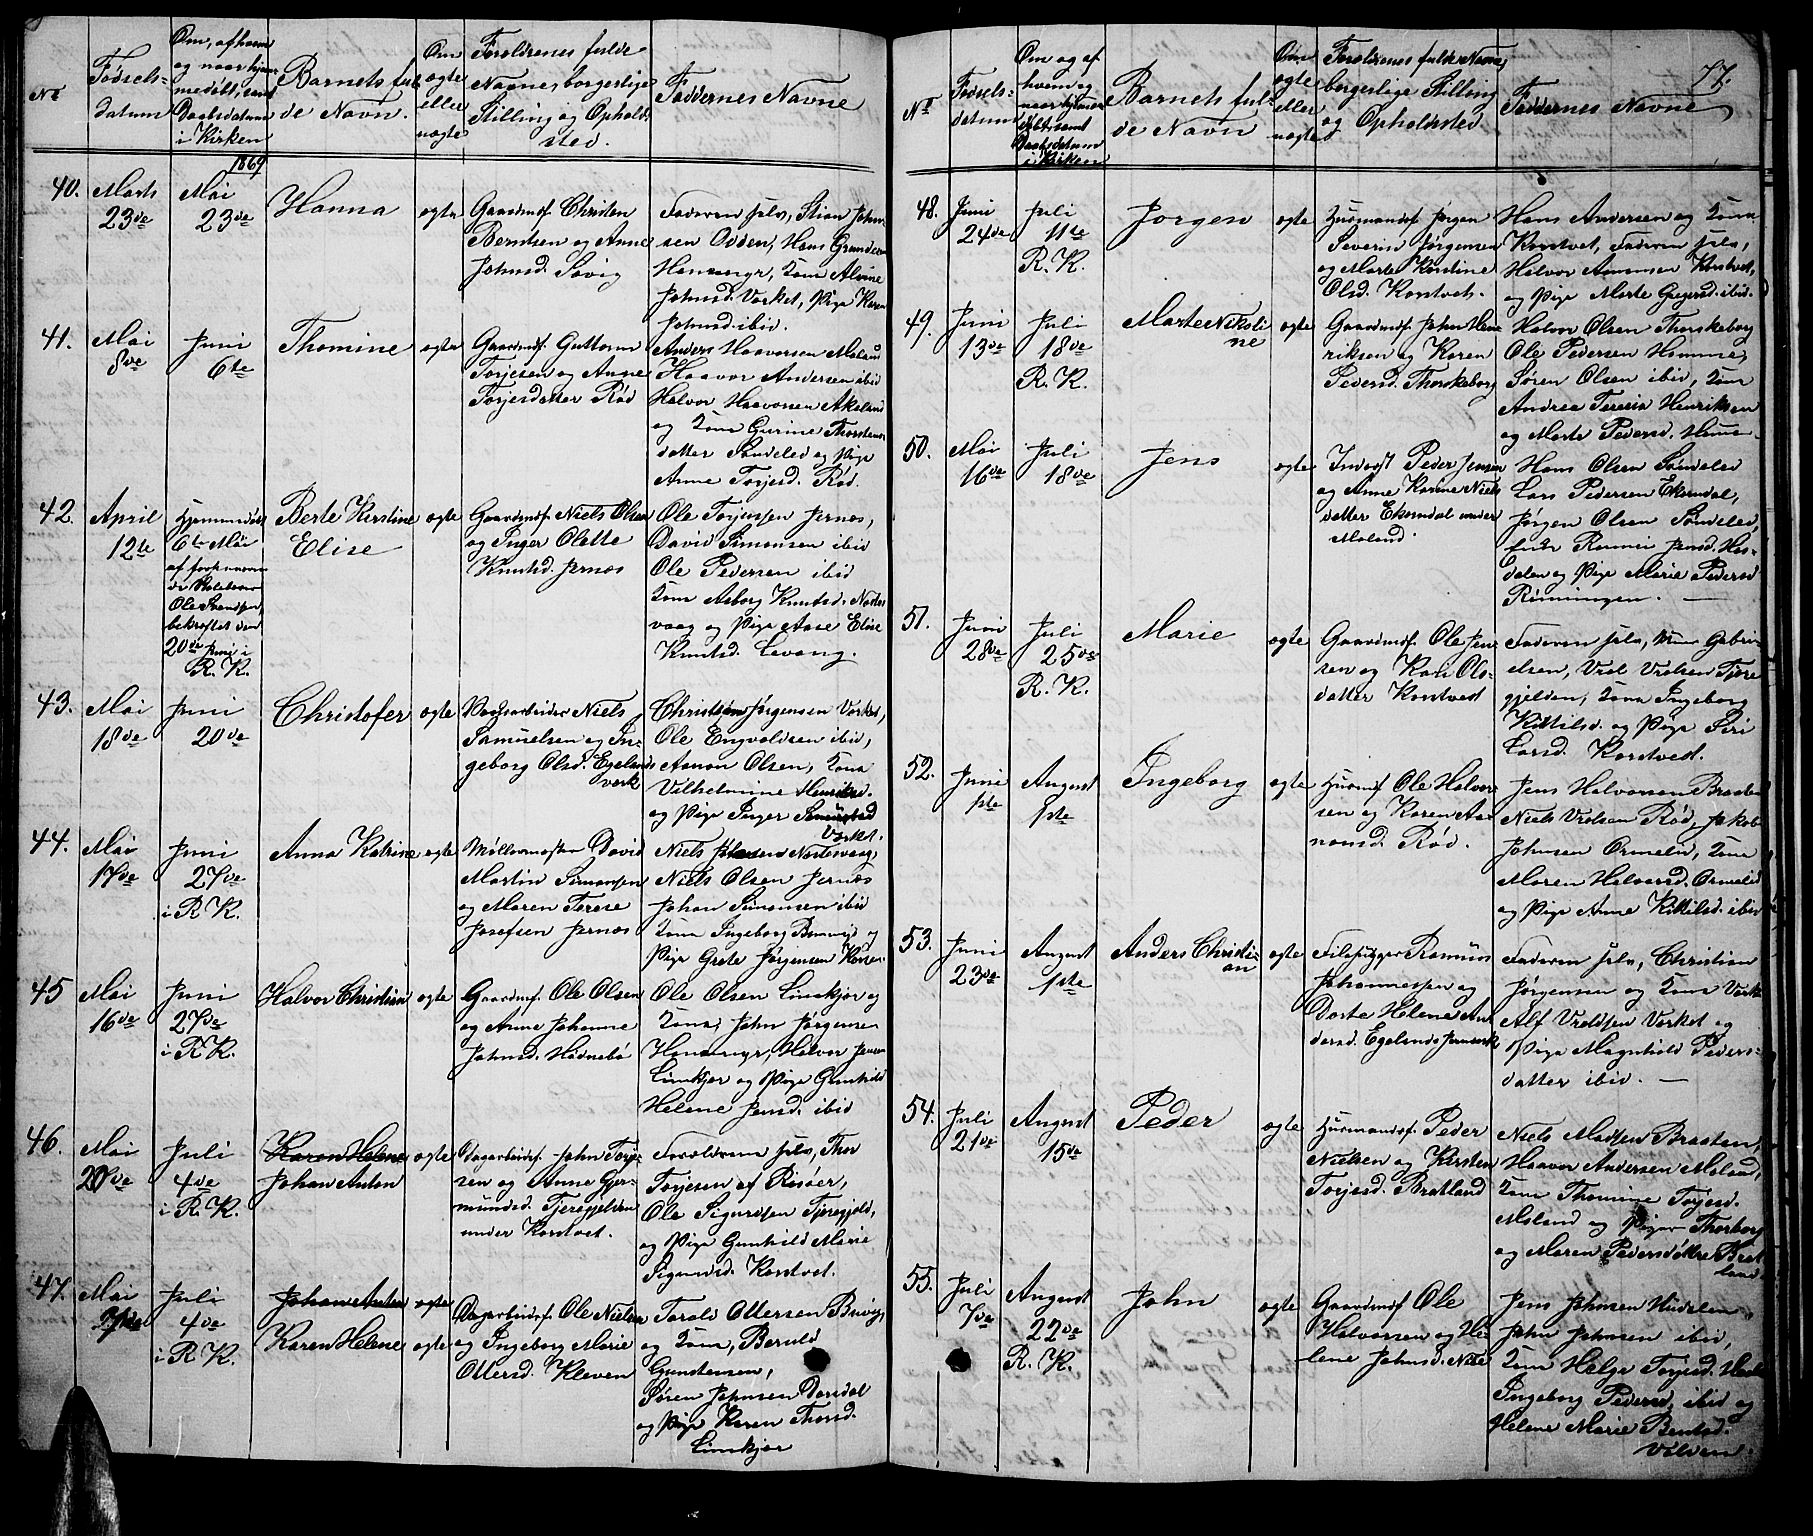 No
Fødsels-
datum
Om, af hvem
og naar hjem-
medøbt, samt
Daabsdatum
i Kirken
Barnets ful-
de Navn.
Om
ægte
eller
uægte
Forældrenes fulde
Navne, borgerlige
Stilling og Ophold-
sted.
Faddernes Navne
1869
40.
Marts
23de
Mai
23de
Hanna
ægte
Gaardmd. Christen
Berntsen og Anne
Johnsd. Søvig
Faderen selv, Stian John-
sen Odden, Hans Gundersen
Hansmyr, Kona Alvine
Johnsd. Værket, Pige Karen
Johnsd. ibid.
41.
Mai
8de
Juni
6te
Thomine
ægte
Gaardmd. Guttorm
Torjesen og Anne
Torjesdatter Rød
Anders Haavorsen Moland
Haavor Andersen ibid
Halvor Haavorsen Akeland
og Kona Gurine Thorstens-
datter Søndeled og Pige
Anne Torjesd. Rød.
42.
April
12te
Hjemmedøbt
6te Mai
af
Ole Svendsen,
bekræftet den
20de Juni i
R. K.
Berte Kirstine
Elise
ægte
Gaardmd. Niels Olsen
og Inger Olette
Knutsd. Jernes
Ole Torjussen Jernes,
David Simonsen ibid
Ole Pedersen ibid
Kona Asborg Knutsd. Norte-
vaag og Pige Aase Elise
Knutsd. Levang.
43.
Mai
18de
Juni
20de
Christofer
ægte
Værksarbeider Niels
Samuelsen og In-
geborg Olsd. Egelands
værk
Christen Jørgensen Værket,
Ole Engvoldsen ibid,
Aanon Olsen, Kona
Vilhelmine Henriksd.
og Pige Inger
Værket.
44.
Mai
17de
Juni
27de
i R. K.
Anna Katrine
ægte
Møllermester David
Martin Simonsen
og Maren Terese
Josefsen Jernes
Niels Johnsen Nortevaag,
Niels Olsen Jernes
Johan Simonsen ibid
Kona Ingeborg og
Pige Grete Jørgensen
45
Mai
16de
Juni
27de
i R. K.
Halvor Christian
ægte
Gaardmd. Ole Olsen
og Anne Johanne
Johnsd. Hødnebø
Ole Olsen Limkjær og
Kona, John Jørgensen
Hansmyr, Halvor Jensen
Limkjær og Pige Gunhild
Helene Jensd. ibid
46.
Mai
20de
Juli
4de
i R. K.
Karen Helene
Johan Anton
ægte
Dagarbeidsf. John Torje-
sen og Anne Gjer-
mundsd. Fjeregjelden
under Korstvet.
Forældrene selv, Thor
Torjesen af Risøer,
Ole Sigurdsen Fjeregjeld,
og Pige Gunhild Marie
Sigurdsd. Korstvet.
47.
Mai
Juli
4de
i R. K.
Johan Anton
Karen Helene
ægte
ægte
Dagarbeidsf. Ole Nielsen
og Ingeborg Marie
Ottersd. Kleven
Torald Ottersen
og Kona, Beruld
Gundersen,
Søren Johnsen Dørsdal
og Pige Karen Thorsd.
Limkjær
77.
No
Fødsels-
datum
Om og af
hvem og
naar hjemme-
døbt, samt
Daabsdatum
i Kirken
Barnets ful-
de Navn
Om
ægte
eller
uægte
Forældrenes fulde Navne,
borgerlige Stilling
og Opholdsted
Faddernes Navne
48.
Juni
24de
Juli
11te
R. K.
Jørgen
ægte
Husmandsf. Jørgen
Severin Jørgensen
og Marte Kirstine
Olsd. Korstvet.
Hans Andersen og Kona
Korstvet, Faderen selv,
Halvor Aanonsen Korstvet,
og Pige Marte Gregersd. ibid.
49.
Juni
13de
Juli
18de
R. K.
Marte Nikoli
ne
ægte
Gaardmd. John Hen-
riksen og Karen
Pedersd. Thorskeborg
Halvor Olsen Thorskeborg
Ole Pedersen Homme,
Søren Olsen ibid, Kona
Andrea Teresia Henriksen
og Marte Pedersd. Homme.
50.
Mai
16de
Juli
18de
Jens
ægte
Inderst Peder Jensen
og Anne Karine Niels
datter Ekerndal under
Moland.
Hans Olsen Søndeled
Lars Pedersen Ekerndal,
Jørgen Olsen Søndeled,
Enke Ronnei Jensd. Hes-
dalen og Pige Marie Pedersd
Rønningen.
51.
Juni
28de
Juli
25de
R. K.
Marie
ægte
Gaardmd. Ole Jen-
sen og Kari Ols-
datter Korstvedt
Faderen selv, Gabri-
elsen, Vrol Vrolsen Fjere
gjelden, Kona Ingeborg
Kittilsd. og Pige Siri
Larsd. Korstvedt.
52.
Juni
1ste
August
1ste
Ingeborg
ægte
Husmd. Ole Halvor-
sen og Karen Aa-
nonsd. Rød.
Jens Halvorsen Braaten
Niels Vrolsen Rød, Jakob
Johnsen Ormelid, Kona
Maren Halvorsd. Ormelid
og Pige Anne Kittilsd. ibid
53.
Juni
23de
August
1ste
Anders Christi-
an
ægte
Filehugger Rasmus
Johannessen og
Dorte Helene An-
dersd. Egelands Jernværk
Faderen selv, Christian
Jørgensen og Kona Værket
Alf Vroldsen Værket og
Pige Magnhild Peders-
datter ibid.
54.
Juli
21de
August
15de
Peder
ægte
Husmandsf. Peder
Nielsen og Kirsten
Torjesd. Bratland
Niels Madsen Braaten,
Haavor Andersen Moland,
Kona Thomine Torjesd.
Moland og Piger Thorborg
og Maren Pedersdøttre Brat-
land.
55.
Juli
7de
August
22de
R. K.
John
ægte
Gaardmd. Ole
Halvorsen og He-
lene Johnsd.
Jens Johnsen
John Johnsen ibid,
Kona Helge Torjesd.
Ingeborg Pedersd. ibid og
Helene Marie Bentsd.